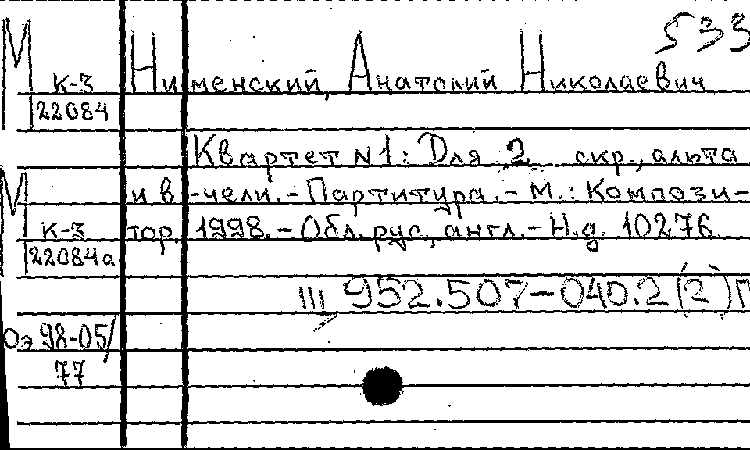 533
М К-3 22084
Нименский, Анатолий Николаевич
Квартет N1: Для 2 скр., альта
и в-чели. - Партитура. - М.: Компози-
тор, 1998. - Обл. рус., англ. - Н.д. 10276
М К-3 22084а
III 952.507-040.2(2)П
Оэ 98-05/
77